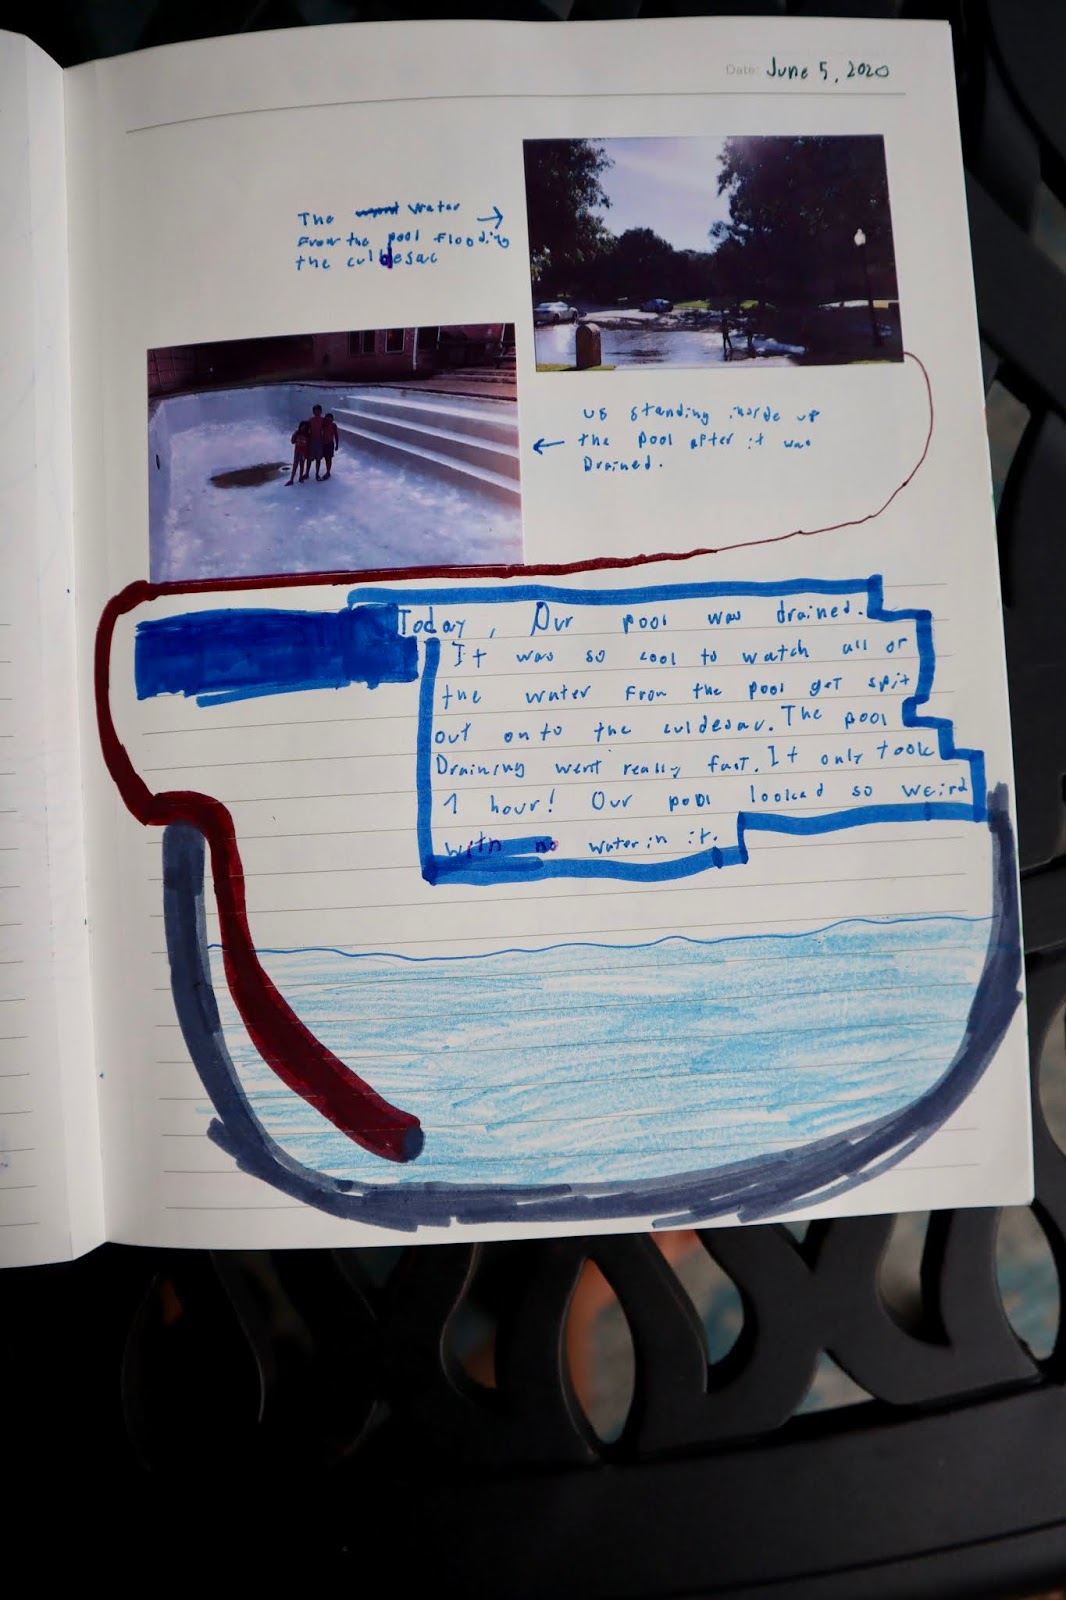 Date: June 5, 2020
The water
From the pool Flooding
the culdesac
us standing inside up
the pool after it was
Drained.
Today, Our pool was drained.
It was so cool to watch all or
the water From the pool get spit
out onto the culdesac. The pool
Draining went really fast. It only took
1 hour! Our pool looked so weird
with no water in it.